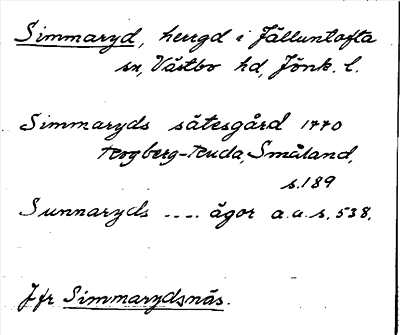 Simmaryd, herrgd i Jälluntofta
sn, Västbo hd, Jönk. l.
Simmaryds sätesgård 1770
Rogberg-Ruda, Småland,
s.189
Sunnaryds .... ägor a.a.s. 538.
Jfr Simmarydsnäs.